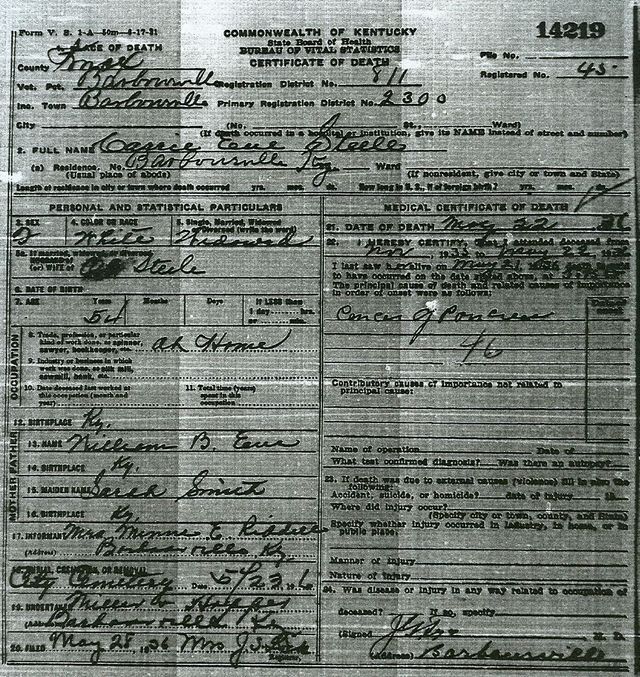 Form V. S. 1-A—50m—8-17-31
COMMONWEALTH OF KENTUCKY
14219
State Board of Health
BUREAU OF VITAL STATISTICS
CERTIFICATE OF DEATH
PLACE OF DEATH
County Knox
File No.
Vot. Pct. Barbourville Registration District No. 811
Registered No. 45
Inc. Town Barbourville Primary Registration District No. 2300
City (No. St., Ward)
(If death occurred in a hospital or institution, give its NAME instead of street and number)
2. FULL NAME Steele
(a) Residence, No. Barbourville Ky. Ward
(Usual place of abode) (If nonresident, give city or town and State)
Length of residence in city or town where death occurred yrs. mos. ds. How long in U. S., if of foreign birth? yrs. mos. ds.
PERSONAL AND STATISTICAL PARTICULARS
3. SEX 4. COLOR OR RACE 5. Single, Married, Widowed or Divorced (write the word)
White Widowed
5a. If married, widowed
(or) WIFE of Steele
6. DATE OF BIRTH
7. AGE Years Months Days If LESS than
54 1 day hrs.
or min.
OCCUPATION
8. Trade, profession, or particular
kind of work done, as spinner,
sawyer, bookkeeper, etc. At Home
9. Industry or business in which
work was done, as silk mill,
sawmill, bank, etc.
10. Date deceased last worked at 11. Total time (years)
this occupation (month and spent in this
year) occupation
12. BIRTHPLACE Ky.
FATHER
13. NAME William B.
14. BIRTHPLACE Ky.
MOTHER
15. MAIDEN NAME Sarah Smith
16. BIRTHPLACE Ky
17. INFORMANT Mrs. Minnie E.
(Address) Barbourville, Ky.
18. BURIAL, CREMATION, OR REMOVAL
City Cemetery Date 5/23
19. UNDERTAKER
Barbourville Ky
20. FILED May 28 1936 Mrs J.
Registrar.
MEDICAL CERTIFICATE OF DEATH
21. DATE OF DEATH May 22
22. I HEREBY CERTIFY, That I attended deceased from
Nov May 22
I last saw her alive on
to have occurred on the date stated above, at
The principal cause of death and related causes of importance
in order of onset were as follows:
Cancer of Pancreas
46
Contributory causes of importance not related to
principal cause:
Name of operation Date of
What test confirmed diagnosis? Was there an autopsy?
23. If death was due to external causes (violence) fill in also the
following:
Accident, suicide, or homicide? date of injury 19
Where did injury occur?
(Specify city or town, county, and State)
Specify whether injury occurred in industry, in home, or in
public place:
Manner of injury
Nature of injury
24. Was disease or injury in any way related to occupation of
deceased? If so, specify
(Signed) M. D.
(Address) Barbourville